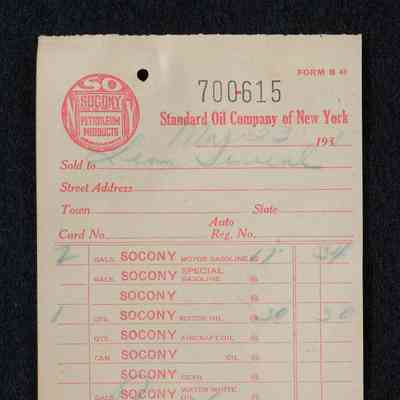 FORM B 40
SO
SOCONY
PETROLEUM
PRODUCTS
700-615
Standard Oil Company of New York
193
Sold to
Street Address
Town State
Auto
Card No. Reg. No.
2 GALS. SOCONY MOTOR GASOLINE @ 17 34
GALS. SOCONY SPECIAL GASOLINE @
SOCONY @
1 QTS. SOCONY MOTOR OIL @ 30 30
QTS. SOCONY AIRCRAFT OIL @
CAN SOCONY OIL @
SOCONY GEAR @
GALS SOCONY WATER WHITE @